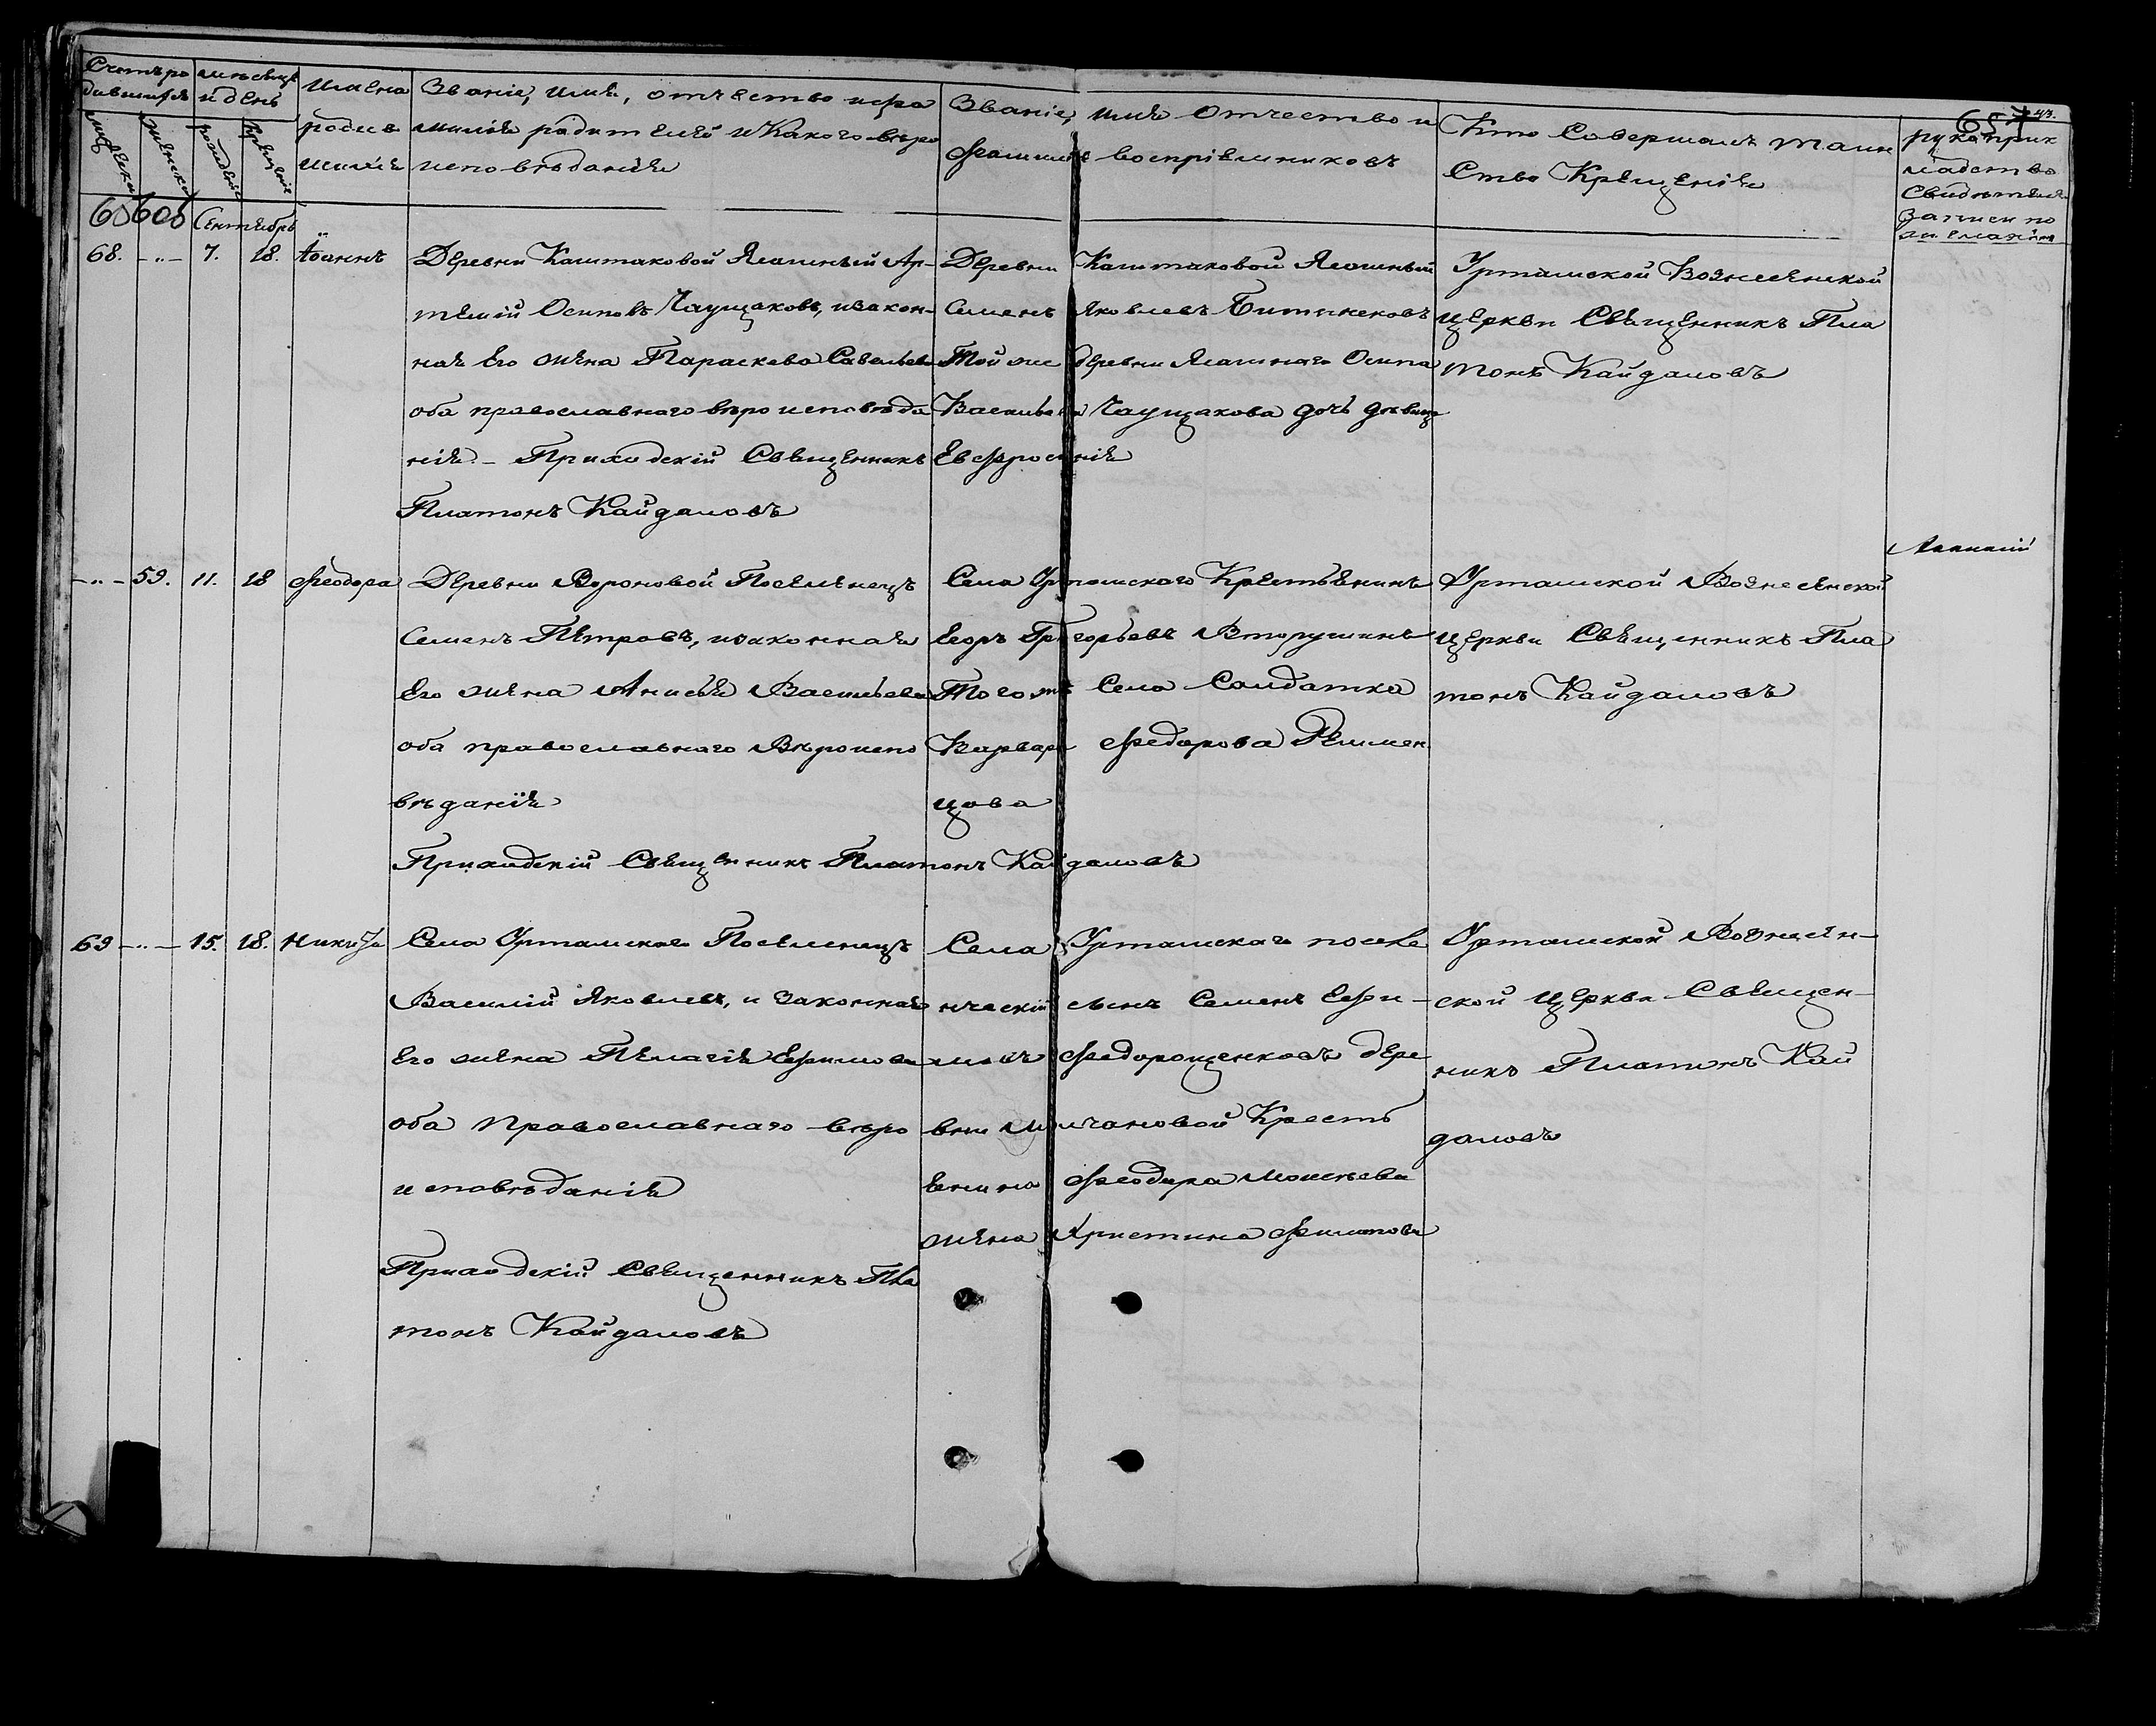 Счетъ ро
дившихся
мѣсяцъ
и день
Имена
родив
шихся
Званіе, имя, отчество и фа
милія родителей и какого вѣро
исповѣданія
Званіе, имя отчество и
фамилія воспріемниковъ
Кто Совершалъ таин
ство Крещенія
рукоприк
ладство
свидѣтелей
записи по
желанію
43.
муж. пола
женска
рожденія
крещенія
Сентябрь
68. -"- 7. 18. Іоаннъ
Деревни Каштаковой Ясашный Ар-
темій Осиповъ Чаущаковъ, и закон-
ная Его жена Параскева Савельева
оба православнаго вѣроисповѣда
нія. - Приходскій Священникъ
Платонъ Кайдаловъ
Деревни Каштаковой Ясашный
Семенъ Яковлевъ
Той же деревни Ясашнаго Осипа
Васильева Чаущакова дочь дѣвица
Евфросинія
Уртамской Вознесенской
церкви Священникъ Пла
тонъ Кайдаловъ
-"- 59. 11. 18 Феодора
Деревни Вороновой Поселенецъ
Семенъ Петровъ, и законная
Его жена Анисья Васильева
оба православнаго Вѣроиспо
вѣданія
Приходскій Священникъ Платонъ Кайдаловъ
Села Уртамскаго Крестьянинъ
Егоръ Григорьевъ Вторушинъ
Того же Села Солдатка
Варвара Федорова
цова
Уртамской Вознесенской
церкви Священникъ Пла
тонъ Кайдаловъ
69 -"- 15. 18. Никита
Села Уртамскаго Поселенецъ
Василій Яковлевъ, и законная
Его жена Пелагія Ефимова
оба православнаго вѣро
исповѣданія
Приходскій Священникъ Пла
тонъ Кайдаловъ
Села Уртамскаго поселе
нческій сынъ Семенъ Ефи-
мовъ Федорощенковъ дере
вни Молчановой Кресть
янина Феодора Моисѣева
жена Христина Филатова
Уртамской Вознесен-
ской церкви Священ-
никъ Платонъ Кай
даловъ